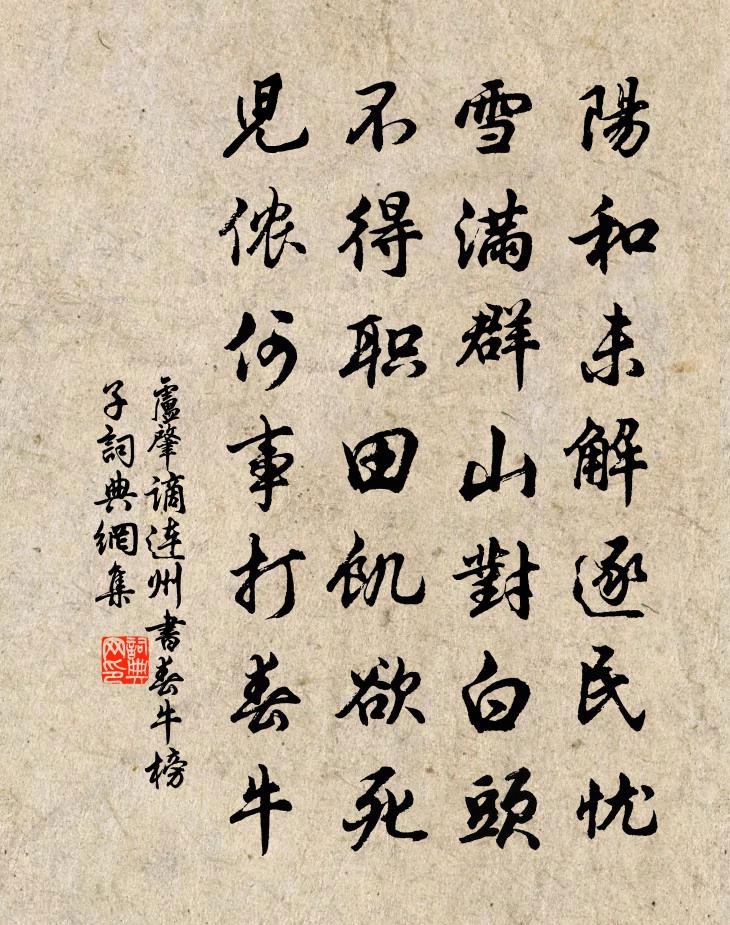 陽和未解逐民忧
雪滿群山對白頭
不得职田飢欲死
児侬何事打春牛
盧肇谪連州書春牛榜
子詞典網集
詞典网印